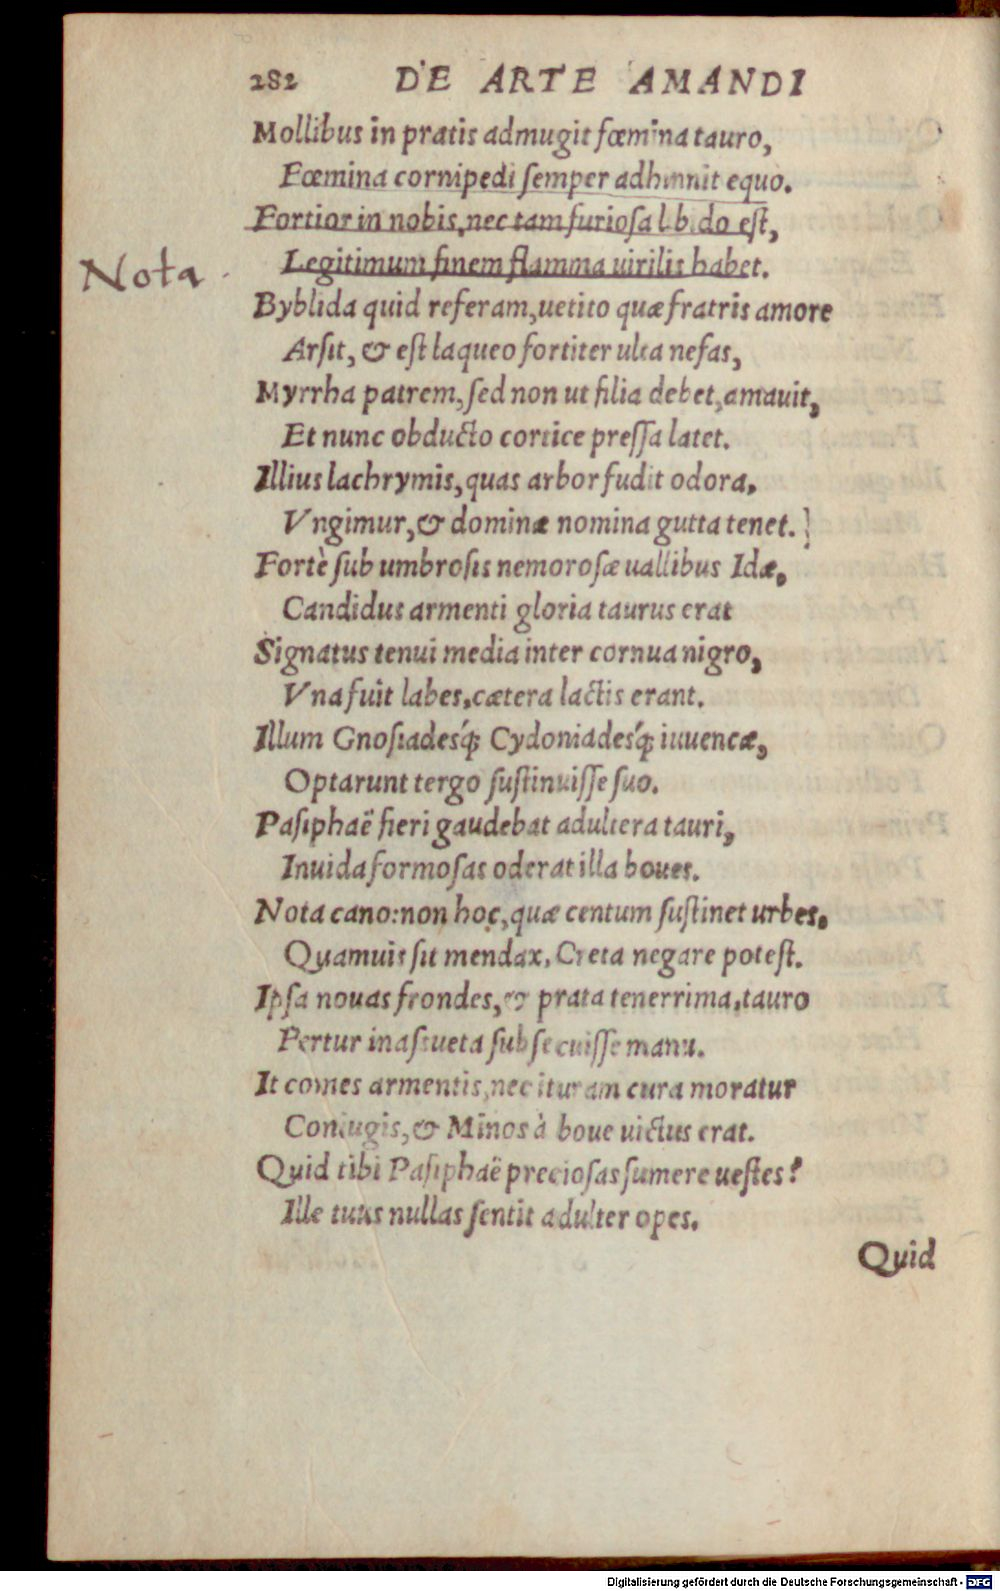 282 DE ARTE AMANDI
Mollibus in pratis admugit fœmina tauro,
Fœmina cornipedi ſemper adhinnit equo.
Fortior in nobis, nec tam furioſa libido eſt,
Nota
Legitimum finem flamma uirilis habet.
Byblida quid referam, uetito quæ fratris amore
Arſit, & eſt laqueo fortiter ulta nefas,
Myrrha patrem, ſed non ut filia debet, amauit,
Et nunc obducto cortice preſſa latet.
Illius lachrymis, quas arbor fudit odora,
Vngimur, & dominæ nomina gutta tenet.
Fortè ſub umbroſis nemoroſæ uallibus Idæ,
Candidus armenti gloria taurus erat
Signatus tenui media inter cornua nigro,
Vna fuit labes, cætera lactis erant.
Illum Gnoſiadesq́; Cydoniadesq́; iuuencæ,
Optarunt tergo ſuſtinuiſſe ſuo.
Paſiphaë fieri gaudebat adultera tauri,
Inuida formoſas oderat illa boues.
Nota cano: non hoc, quæ centum ſuſtinet urbes,
Quamuis ſit mendax, Creta negare poteſt.
Ipſa nouas frondes, & prata tenerrima, tauro
Fertur inaſſueta ſubſecuiſſe manu.
It comes armentis, nec ituram cura moratur
Coniugis, & Minos à boue uictus erat.
Quid tibi Paſiphaë precioſas ſumere ueſtes?
Ille tuus nullas ſentit adulter opes.
Quid
Digitalisierung gefördert durch die Deutsche Forschungsgemeinschaft - DFG